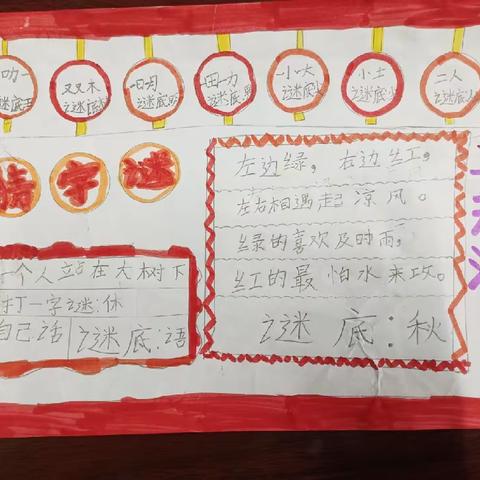 叨一
谜底:王
又又木
谜底:
一日月
谜底:
田一力
谜底:
一小大
谜底:
小土
谜底:
二人
谜底:
猜字谜
左边绿，右边红，
左右相遇起凉风。
绿的喜欢及时雨，
红的最怕水来攻。
谜底:秋
一个人站在大树下
打一字谜:休
自己话 谜底:语